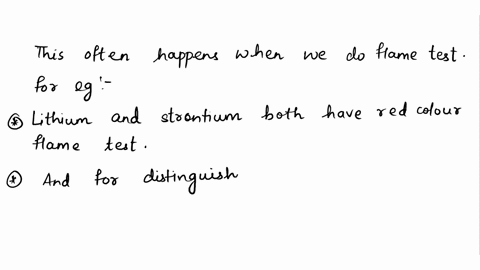 This often happens when we do flame test.
for eg :-
* Lithium and strontium both have red colour
flame test.
* And for distinguish